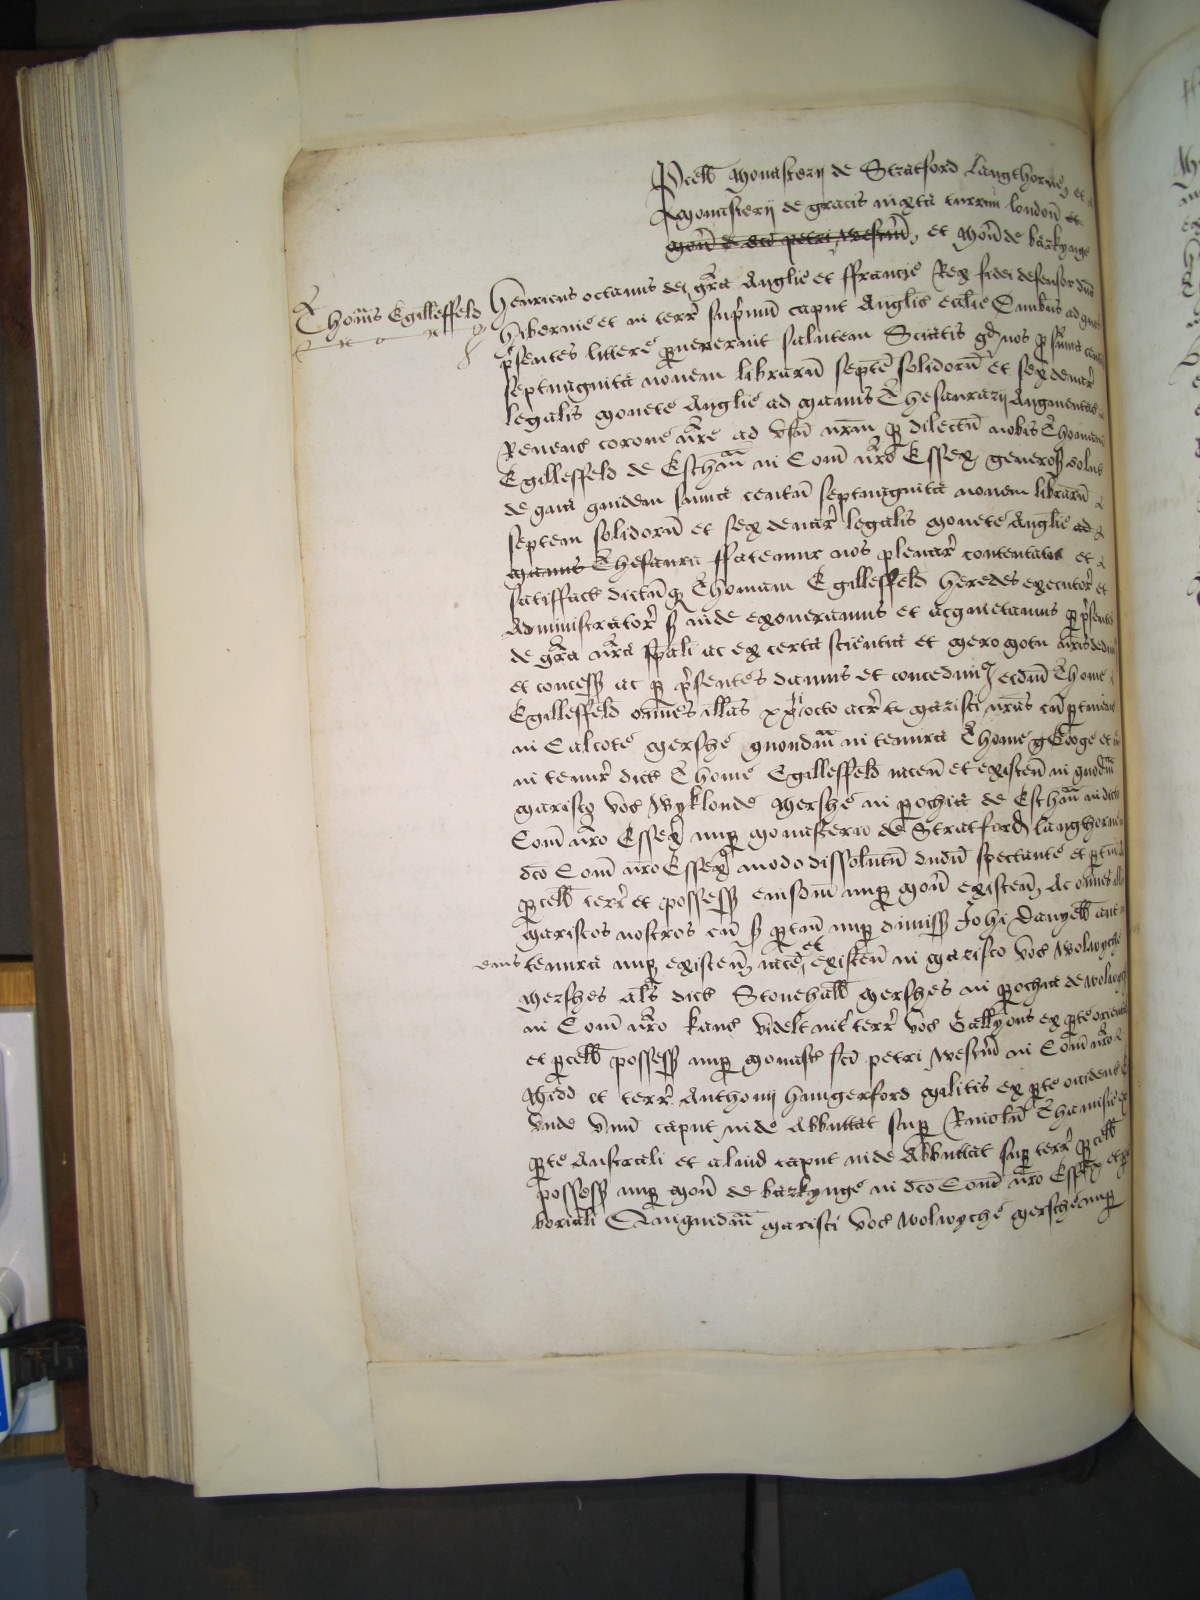 Pcell Monasterij de Stratford Langthorne et
Monasterij de gracis iuxta turrim london et
Mon de sci petri Westm, et Mon de barkynge
Thoms Egilleffeld
Henricus octauus dei gra Anglie et ffrancie Rex fidei defensor dns
hibernie et in terr supmu caput Anglic eclie Omibus ad quos
psentes littere puenerint salutem Sciatis qd nos p suma centu
septuaginta nouem libraru septe solidoru et sex denar
legalis monete Anglie ad manus Thesaurarij Augmentac
Reuenc corone nre ad vsu nrm p dilectu nobis Thomam
Egilleffeld de Estham in Com nro Essex generos solut
de qua quidem suma centu septuaginta nouem libraru
septem solidoru et sex denar legalis monete Anglie ad
manus Thesaura ffatemur nos plenar contentatos et
satisfact dictuq Thomam Egilleffeld heredes executor et
Administrator s inde exoneramus et acquietamus p psentes
de gra nra spali ac ex certa scientia et mero motu nris dedim
et concess ac p psentes damus et concedim ecdm Thome
Egilleffeld omes illas xxti octo acr te marisci nras cu ptinent
in Calcote mershe quondam in tenura Thome George et
in tenur dict Thome Egilleffeld iacen et existen in quodam
marisco voc Wyklonde Mershe in pochia de Estham in dicto
Com nro Essex nup monasterio de Stratford langhorne in
dco Com nro Essex modo dissolutu dudu spectante et ptin
pcell terr et possess eiusdm nup Mon existen, Ac omes illos
mariscos nostros cu s ptin nup dimiss Johi Danyell aut in
eius tenura nup existen, iace et existen in marisco voc Wolwyche
Mershes als dict Stonehall Mershes in pochia de Wolwych
in Com nro Kanc videlt int terr voc Gallyons ex pte orient
et pcell possess nup Monast sci petri Westm in Com nro
Midd et terr Anthonij hungerford militis ex pte occident
vnde vnu caput inde Abbuttat sup Riuolu Thamisie ex
pte Australi et aliud caput inde Abbuttat sup terr pcell
possess nup Mon de barkynge in dco Com nro Essex ex p
boriali Quiquidm marisci voc Wolwyche Mershe nup